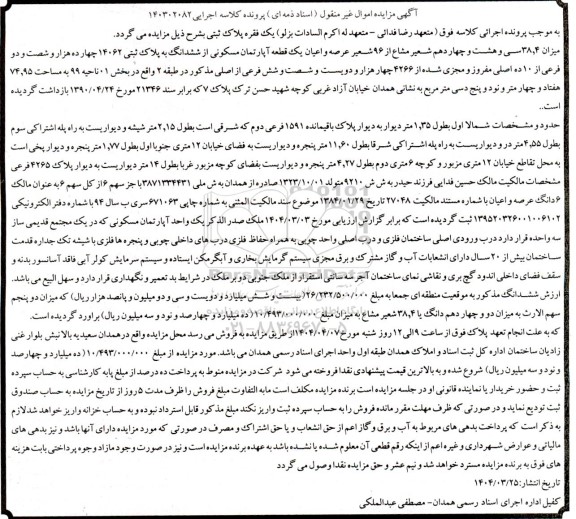 آگهی مزایده اموال غیر منقول ( اسناد ذمه ای ) پرونده کلاسه اجرایی ۱۴۰۳۰۲۰۸۲
به موجب پرونده اجرائی کلاسه فوق ( متعهد رضا فدائی - متعهد له اکرم السادات بزلو) یک فقره پلاک ثبتی بشرح ذیل مزایده می گردد.
میزان ۳۸,۴ سی و هشت و چهار دهم شعیر مشاع از ۹۶ شعیر عرصه و اعیان یک قطعه آپارتمان مسکونی از ششدانگ به پلاک ثبتی ۱۴۰۶۲ چهارده هزار و شصت و دو
فرعی از ۱۰ ده اصلی مفروز و مجزی شده از ۴۲۶۶ چهار هزار و دویست و شصت و شش فرعی از اصلی مذکور در طبقه ۲ واقع در بخش ۰۱ ناحیه ۹۹ به مساحت ۷۴,۹۵
هفتاد و چهار متر و نود و پنج دسی متر مربع به نشانی همدان خیابان آزاد غربی کوچه شهید حسن ترک پلاک ۷ که برابر سند ۲۱۳۴۶ مورخ ۱۳۹۰/۰۴/۲۴ بازداشت گردیده
است..
حدود و مشخصات شمالا اول بطول ۱,۳۵ متر دیوار به دیوار پلاک باقیمانده ۱۵۹۱ فرعی دوم که شرقی است بطول ۲,۱۵ متر شیشه و دیواریست به راه پله اشتراکی سوم
بطول ۴,۵۵ متر در و دیواریست به راه پله اشتراکی شرقا بطول ۱۱,۶۰ متر پنجره و دیواریست به فضای خیابان ۱۲ متری جنوبا اول بطول ۱,۷۷ متر پنجره و دیوار پخی است
به محل تقاطع خیابان ۱۲ متری مزبور و کوچه ۶ متری دوم بطول ۴,۲۷ متر پنجره و دیواریست بفضای کوچه مزبور غربا بطول ۱۴ متر دیواریست به دیوار پلاک ۴۲۶۵ فرعی
مشخصات مالکیت مالک حسین فدایی فرزند حیدر به ش ش ۹۲۱۰ متولد ۱۳۲۳/۱۰/۰۱ صادره از همدان به ش ملی ۳۸۷۱۳۳۴۴۳۱ با جز سهم ۶ از کل سهم ۶ به عنوان مالک
۶ دانگ عرصه و اعیان با شماره مستند مالکیت ۲۷۰۴۸ تاریخ ۱۳۸۴/۰۱/۲۹ موضوع سند مالکیت المثنی به شماره چاپی ۶۷۱۰۶۳ سری ب سال ۹۴ با شماره دفتر الکترونیکی
۱۳۹۵۲۰۳۲۶۰۰۱۰۰۶۱۰۲ ثبت گردیده است که برابر گزارش ارزیابی مورخ ۱۴۰۴/۰۳/۰۳ ملک صدر الذکر یک واحد آپارتمان مسکونی که در یک مجتمع قدیمی ساز
سه واحده قرار دارد درب ورودی اصلی ساختمان فلزی و درب اصلی واحد چوبی به همراه حفاظ فلزی درب های داخلی چوبی و پنجره ها فلزی با شیشه تک جداره قدمت
ساختمان بیش از ۲۰ سال دارای انشعابات آب و گاز مشترک و برق مجزی سیستم گرمایش بخاری و آبگرمکن ایستاده و سیستم سرمایش کولر آبی فاقد آسانسور بدنه و
سقف فضای داخلی اندود گچ بری و نقاشی نمای ساختمان آجر سه سانتی استقرار از ملک جنوبی و دو بر ملک در شرایط بد تعمیر و نگهداری قرار دارد و سهل البیع می باشد.
ارزش ششدانگ مذکور به موقعیت منطقه ای جمعا به مبلغ ۲۶/۲۳۲/۵۰۰/۰۰۰ (بیست و شش میلیارد و دویست و سی و دو میلیون و پانصد هزار ریال) که میزان دو پنجم
سهم الارث به میزان دو و چهار دهم دانگ یا ۳۸,۴ شعیر مشاع به میزان مبلغ ۱۰/۴۹۳/۰۰۰/۰۰۰ (ده میلیارد و چهارصد و نود و سه میلیون ریال) برآورد گردیده است.
که به علت انجام تعهد پلاک فوق از ساعت ۹ الی ۱۲ روز شنبه مورخ ۱۴۰۴/۰۴/۰۷ از طریق مزایده به فروش می رسد محل مزایده واقع در همدان سعیدیه بالا نبش بلوار غنی
زادیان ساختمان اداره کل ثبت اسناد و املاک همدان طبقه اول واحد اجرای اسناد رسمی همدان می باشد. مورد مزایده از مبلغ ۱۰/۴۹۳/۰۰۰/۰۰۰ (ده میلیارد و چهارصد
و نود و سه میلیون ریال) شروع شده و به بالاترین قیمت پیشنهادی نقدا فروخته می شود شرکت در مزایده منوط به پرداخت ده درصد از مبلغ پایه کارشناسی به حساب سپرده
ثبت و حضور خریدار یا نماینده قانونی او در جلسه مزایده است برنده مزایده مکلف است مابه التفاوت مبلغ فروش را ظرف مدت ۵ روز از تاریخ مزایده به حساب صندوق
ثبت تودیع نماید و در صورتی که ظرف مهلت مقرر مانده فروش را به حساب سپرده ثبت واریز نکند مبلغ مذکور قابل استرداد نبوده و به حساب خزانه واریز خواهد شد لازم
به ذکر است که پرداخت بدهی های مربوط به آب و برق و گاز اعم از حق انشعاب و یا حق اشتراک و مصرف در صورتی که مورد مزایده دارای آنها باشد و نیز بدهی های
مالیاتی و عوارض شهرداری و غیره اعم از اینکه رقم قطعی آن معلوم شده یا نشده باشد به عهده برنده مزایده است و نیز در صورت وجود مازاد وجوه پرداختی بابت هزینه
های فوق به برنده مزایده مسترد خواهد شد و نیم عشر و حق مزایده نقدا وصول می گردد
تاریخ انتشار: ۱۴۰۴/۰۳/۲۵
کفیل اداره اجرای اسناد رسمی همدان- مصطفی عبدالملکی